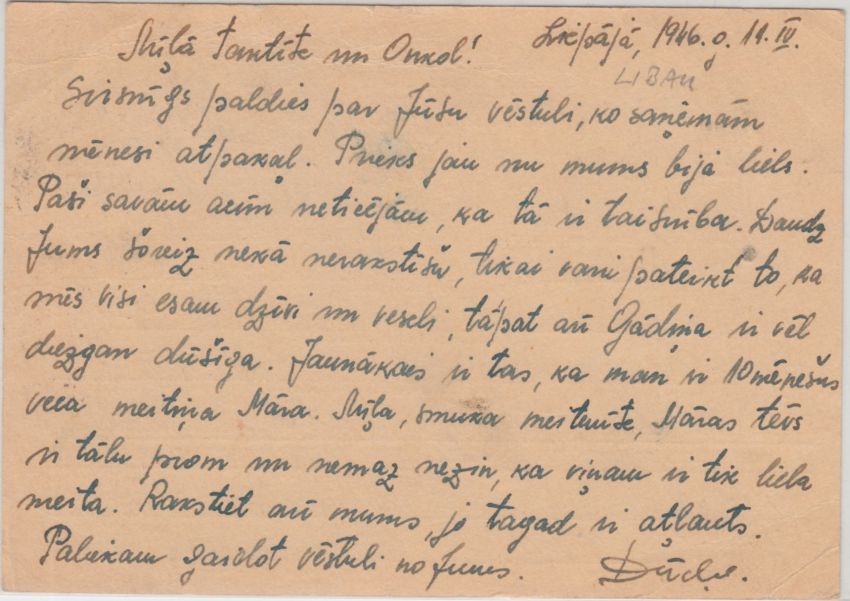 Liepājā, 1946. g. 11. IV.
LIBAU
Mīļā Tantīte un Onkol!
Sirsnīgs paldies par Jūsu vēstuli, ko saņēmām
mēnesi atpakaļ. Prieks jau nu mums bija liels.
Paši savām acīm neticējām, ka tā ir taisnība. Daudz
Jums šoreiz nekā nerakstīšu, tikai vari pateikt to, ka
mēs visi esam dzīvi un veseli, tāpat arī Gādiņa ir vēl
diezgan dūšīga. Jaunākais ir tas, ka man ir 10 mēnešus
veca meitiņa Māra. Mīļa, smuka meitenīte, Māras tēvs
ir tālu prom un nemaz nezin, ka viņam ir tik liela
meita. Rakstiet arī mums, jo tagad ir atļauts.
Paliekam gaidot vēstuli no Jums.